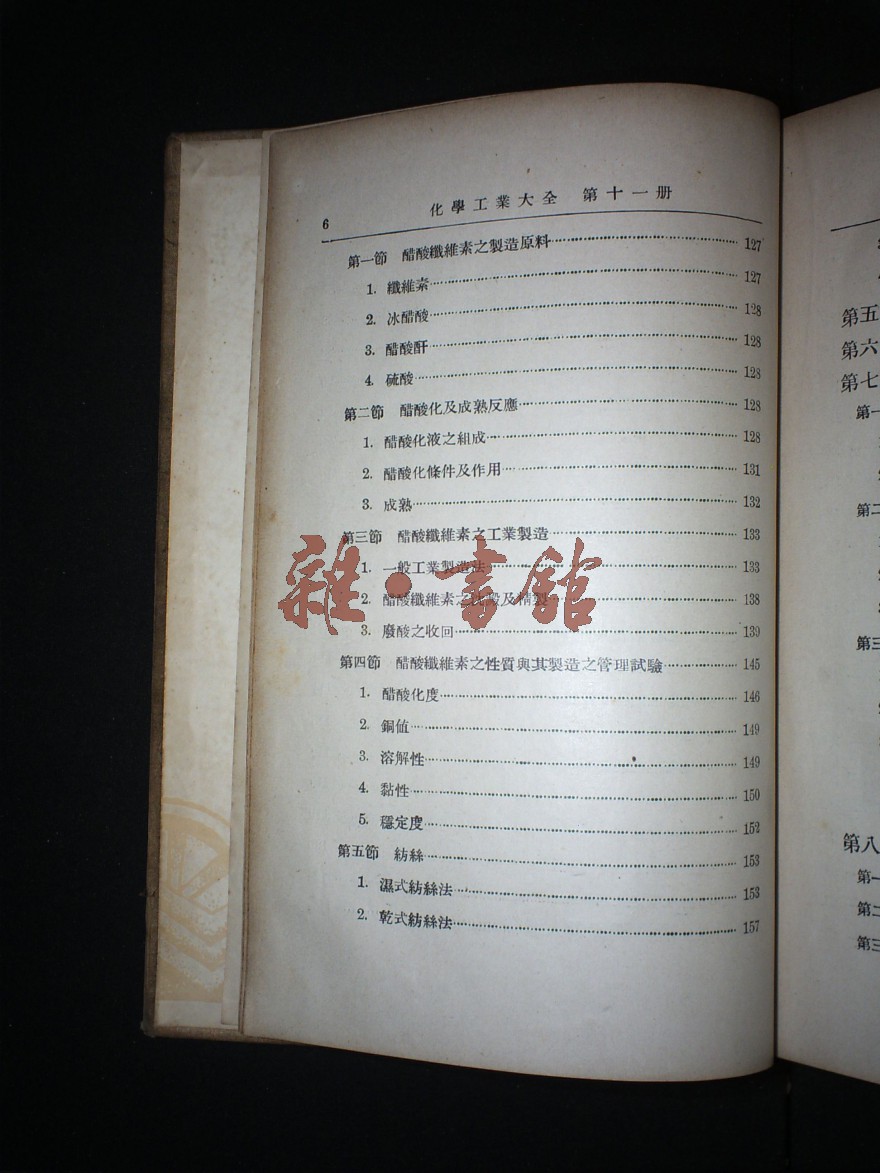 6
化學工業大全 第十一册
第一節 醋酸纖維素之製造原料 127
1. 纖維素 127
2. 冰醋酸 128
3. 醋酸酐 128
4. 硫酸 128
第二節 醋酸化及成熟反應 128
1. 醋酸化液之組成 128
2. 醋酸化條件及作用 131
3. 成熟 132
第三節 醋酸纖維素之工業製造 133
1. 一般工業製造法 133
2. 醋酸纖維素之沈澱及精製 138
3. 廢酸之收回 139
第四節 醋酸纖維素之性質與其製造之管理試驗 145
1. 醋酸化度 146
2. 銅値 149
3. 溶解性 149
4. 黏性 150
5. 穩定度 152
第五節 紡絲 153
1. 濕式紡絲法 153
2. 乾式紡絲法 157
雜·書館
第五
第六
第七
第一
第二
第三
第八
第一
第二
第三